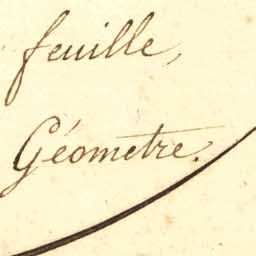 feuille,
Géometre.